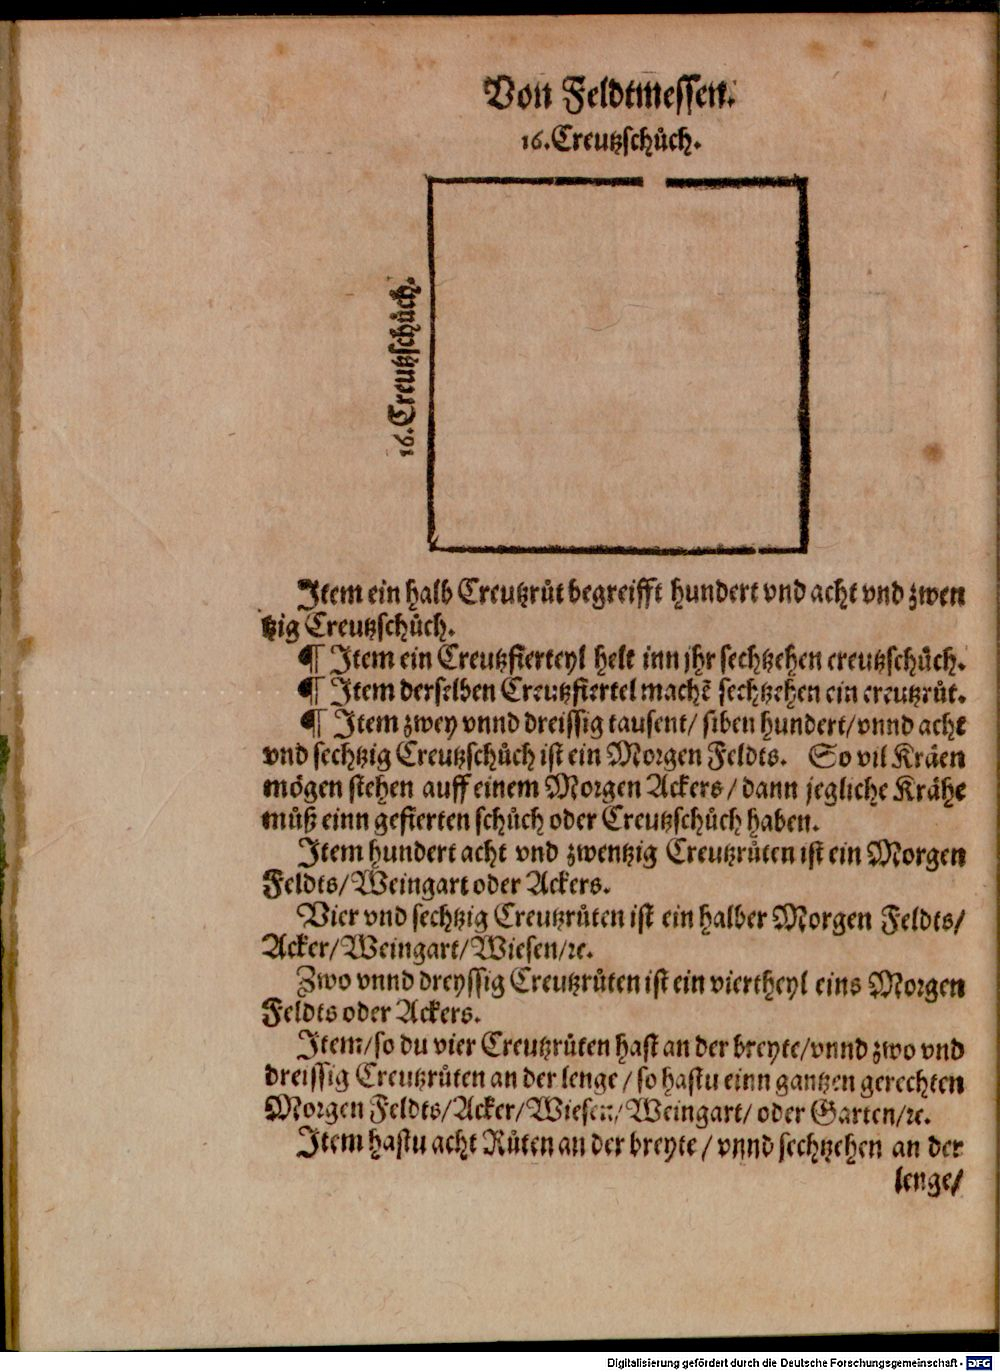 Von Feldtmessen.
16. Creutzschůch.
16. Creutzschůch.
Item ein halb Creutzrůt begreifft hundert vnd acht vnd zwen
tzig Creutzschůch.
¶ Item ein Creutzfierteyl helt inn jhr sechtzehen creutzschůch.
¶ Item derselben Creutzfiertel machẽ sechtzehen ein creutzrůt.
¶ Item zwey vnnd dreissig tausent/ siben hundert/ vnnd acht
vnd sechtzig Creutzschůch ist ein Morgen Feldts. So vil Kräen
mögen stehen auff einem Morgen Ackers/ dann jegliche Krähe
můß einn gefierten schůch oder Creutzschůch haben.
Item hundert acht vnd zwentzig Creutzrůten ist ein Morgen
Feldts/ Weingart oder Ackers.
Vier vnd sechtzig Creutzrůten ist ein halber Morgen Feldts/
Acker/ Weingart/ Wiesen/ ꝛc.
Zwo vnnd dreyssig Creutzrůten ist ein viertheyl eins Morgen
Feldts oder Ackers.
Item/ so du vier Creutzrůten hast an der breyte/ vnnd zwo vnd
dreissig Creutzrůten an der lenge/ so hastu einn gantzen gerechten
Morgen Feldts/ Acker/ Wiesen/ Weingart/ oder Garten/ ꝛc.
Item hastu acht Růten an der breyte/ vnnd sechtzehen an der
lenge/
Digitalisierung gefördert durch die Deutsche Forschungsgemeinschaft - DFG